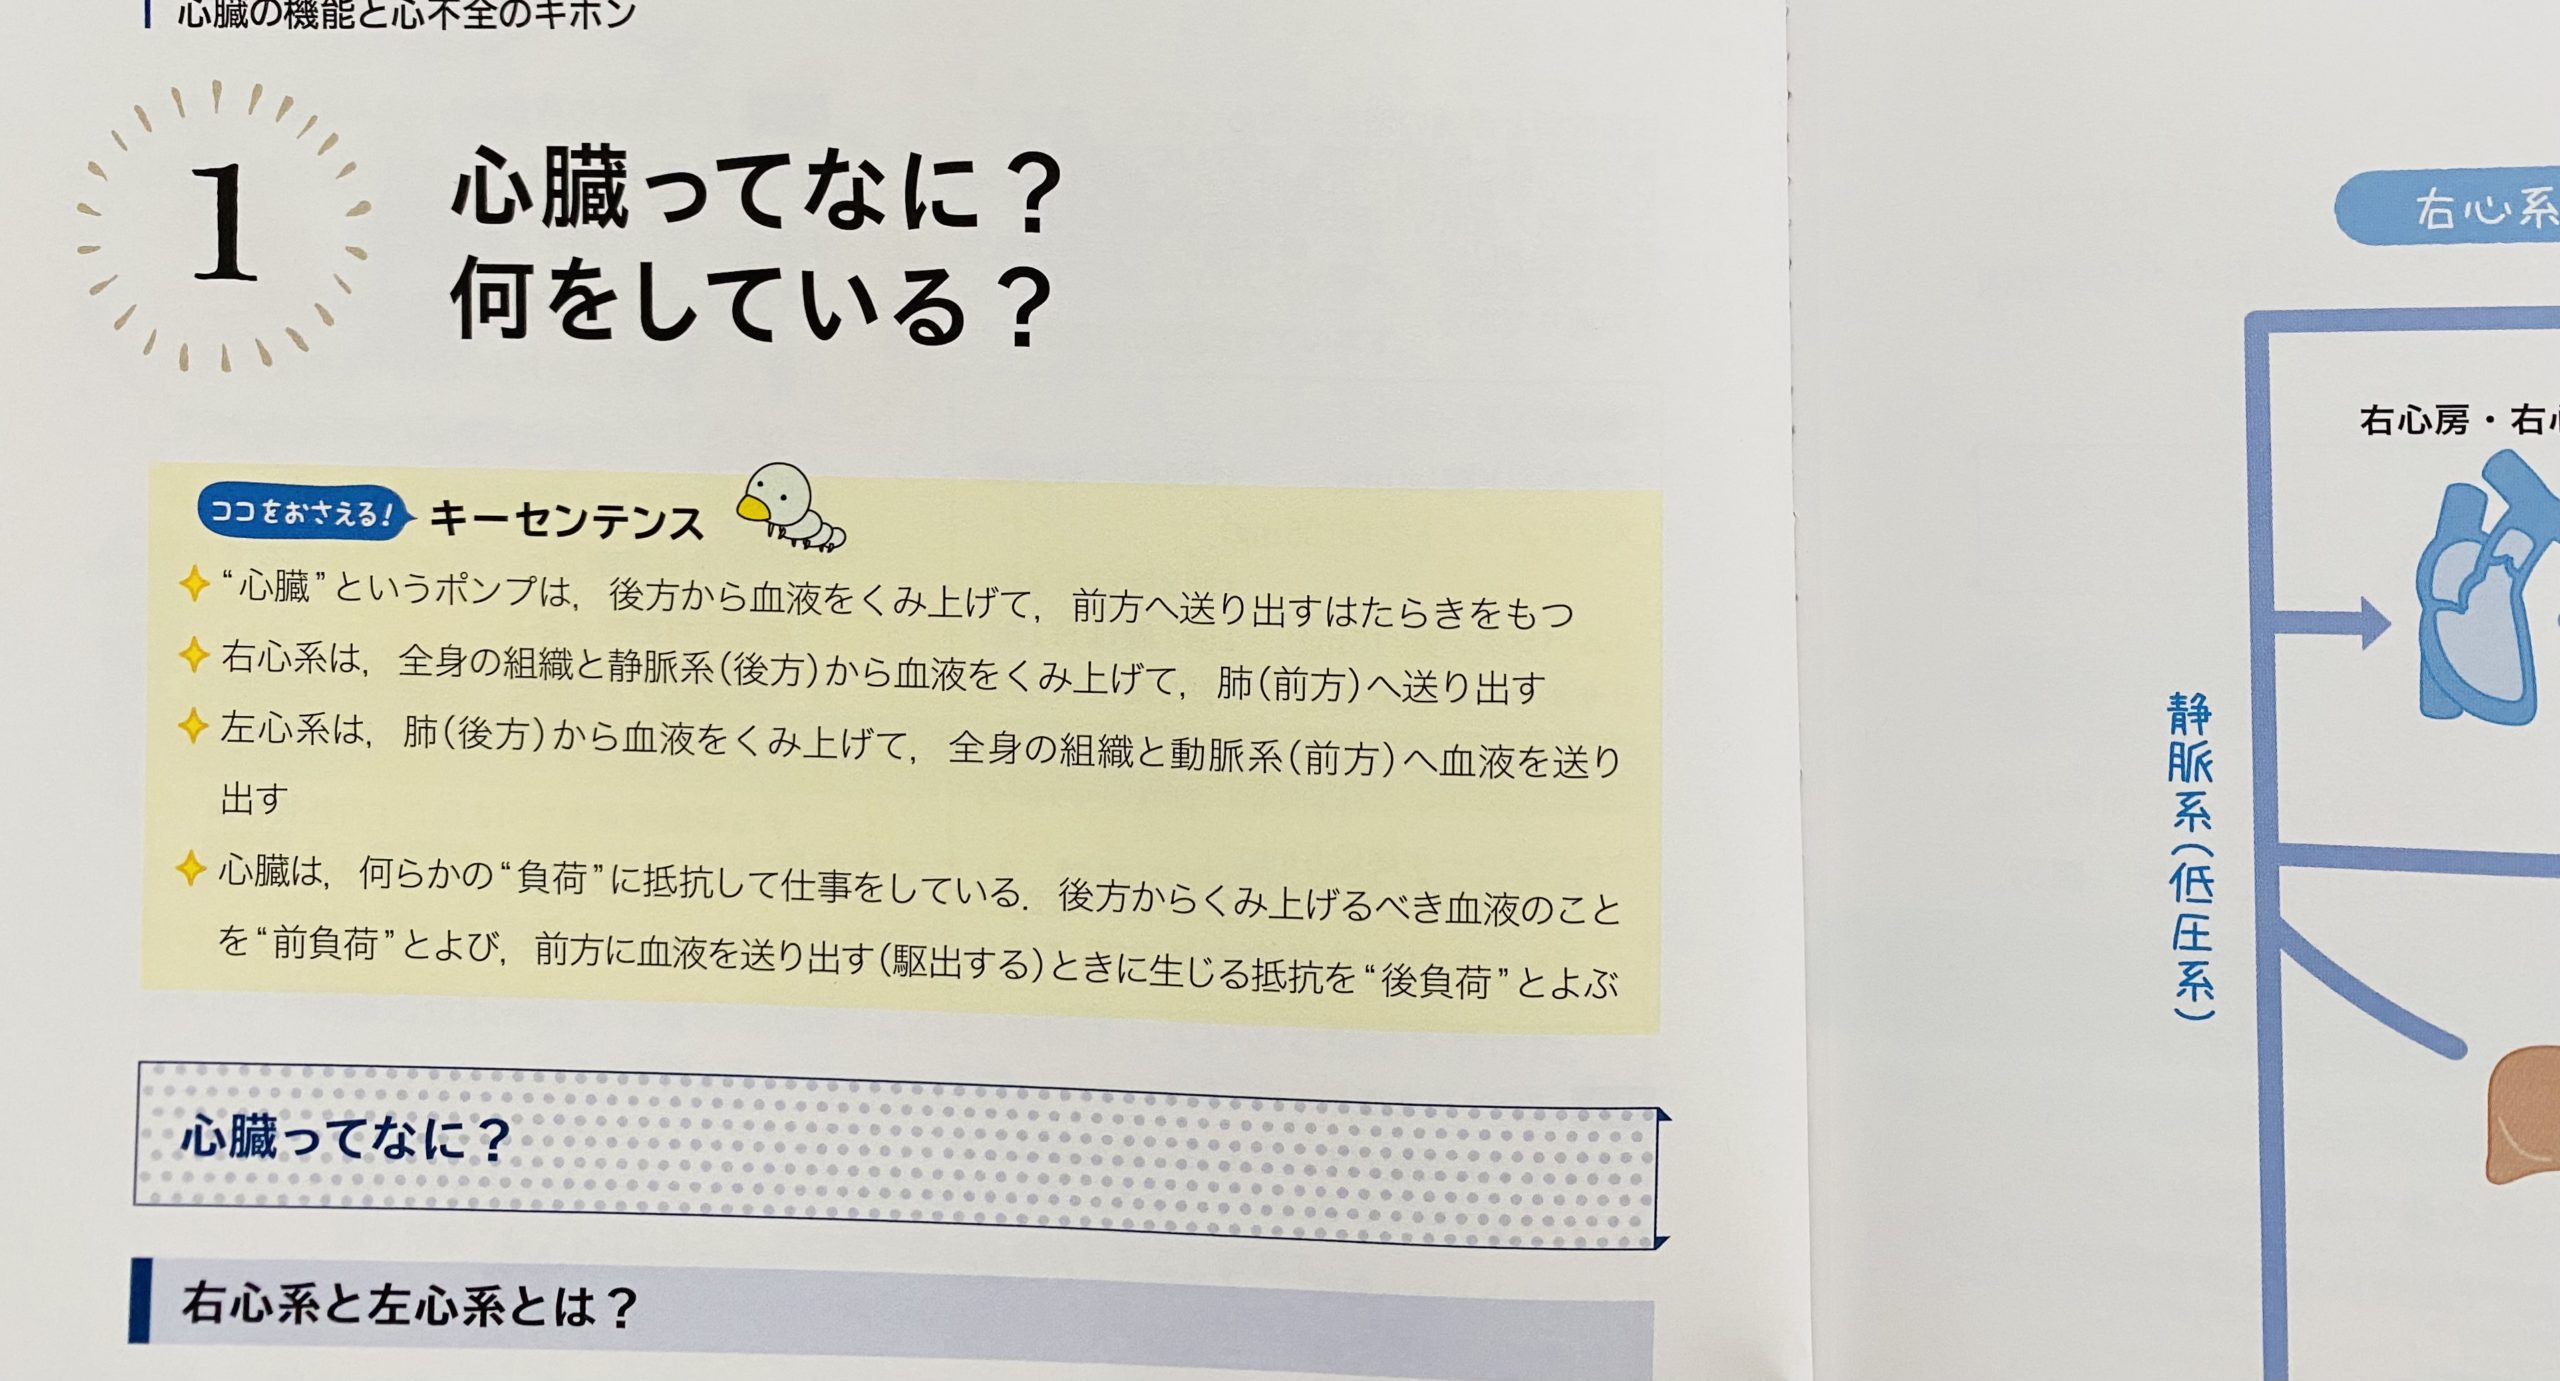 心臓の機能と心不全のキホン
1
心臓ってなに？
何をしている？
ココをおさえる！ キーセンテンス
“心臓”というポンプは，後方から血液をくみ上げて，前方へ送り出すはたらきをもつ
右心系は，全身の組織と静脈系(後方)から血液をくみ上げて，肺(前方)へ送り出す
左心系は，肺(後方)から血液をくみ上げて，全身の組織と動脈系(前方)へ血液を送り
出す
心臓は，何らかの“負荷”に抵抗して仕事をしている．後方からくみ上げるべき血液のこと
を“前負荷”とよび，前方に血液を送り出す(駆出する)ときに生じる抵抗を“後負荷”とよぶ
心臓ってなに？
右心系と左心系とは？
右心系
右心房・右心
静脈系(低圧系)